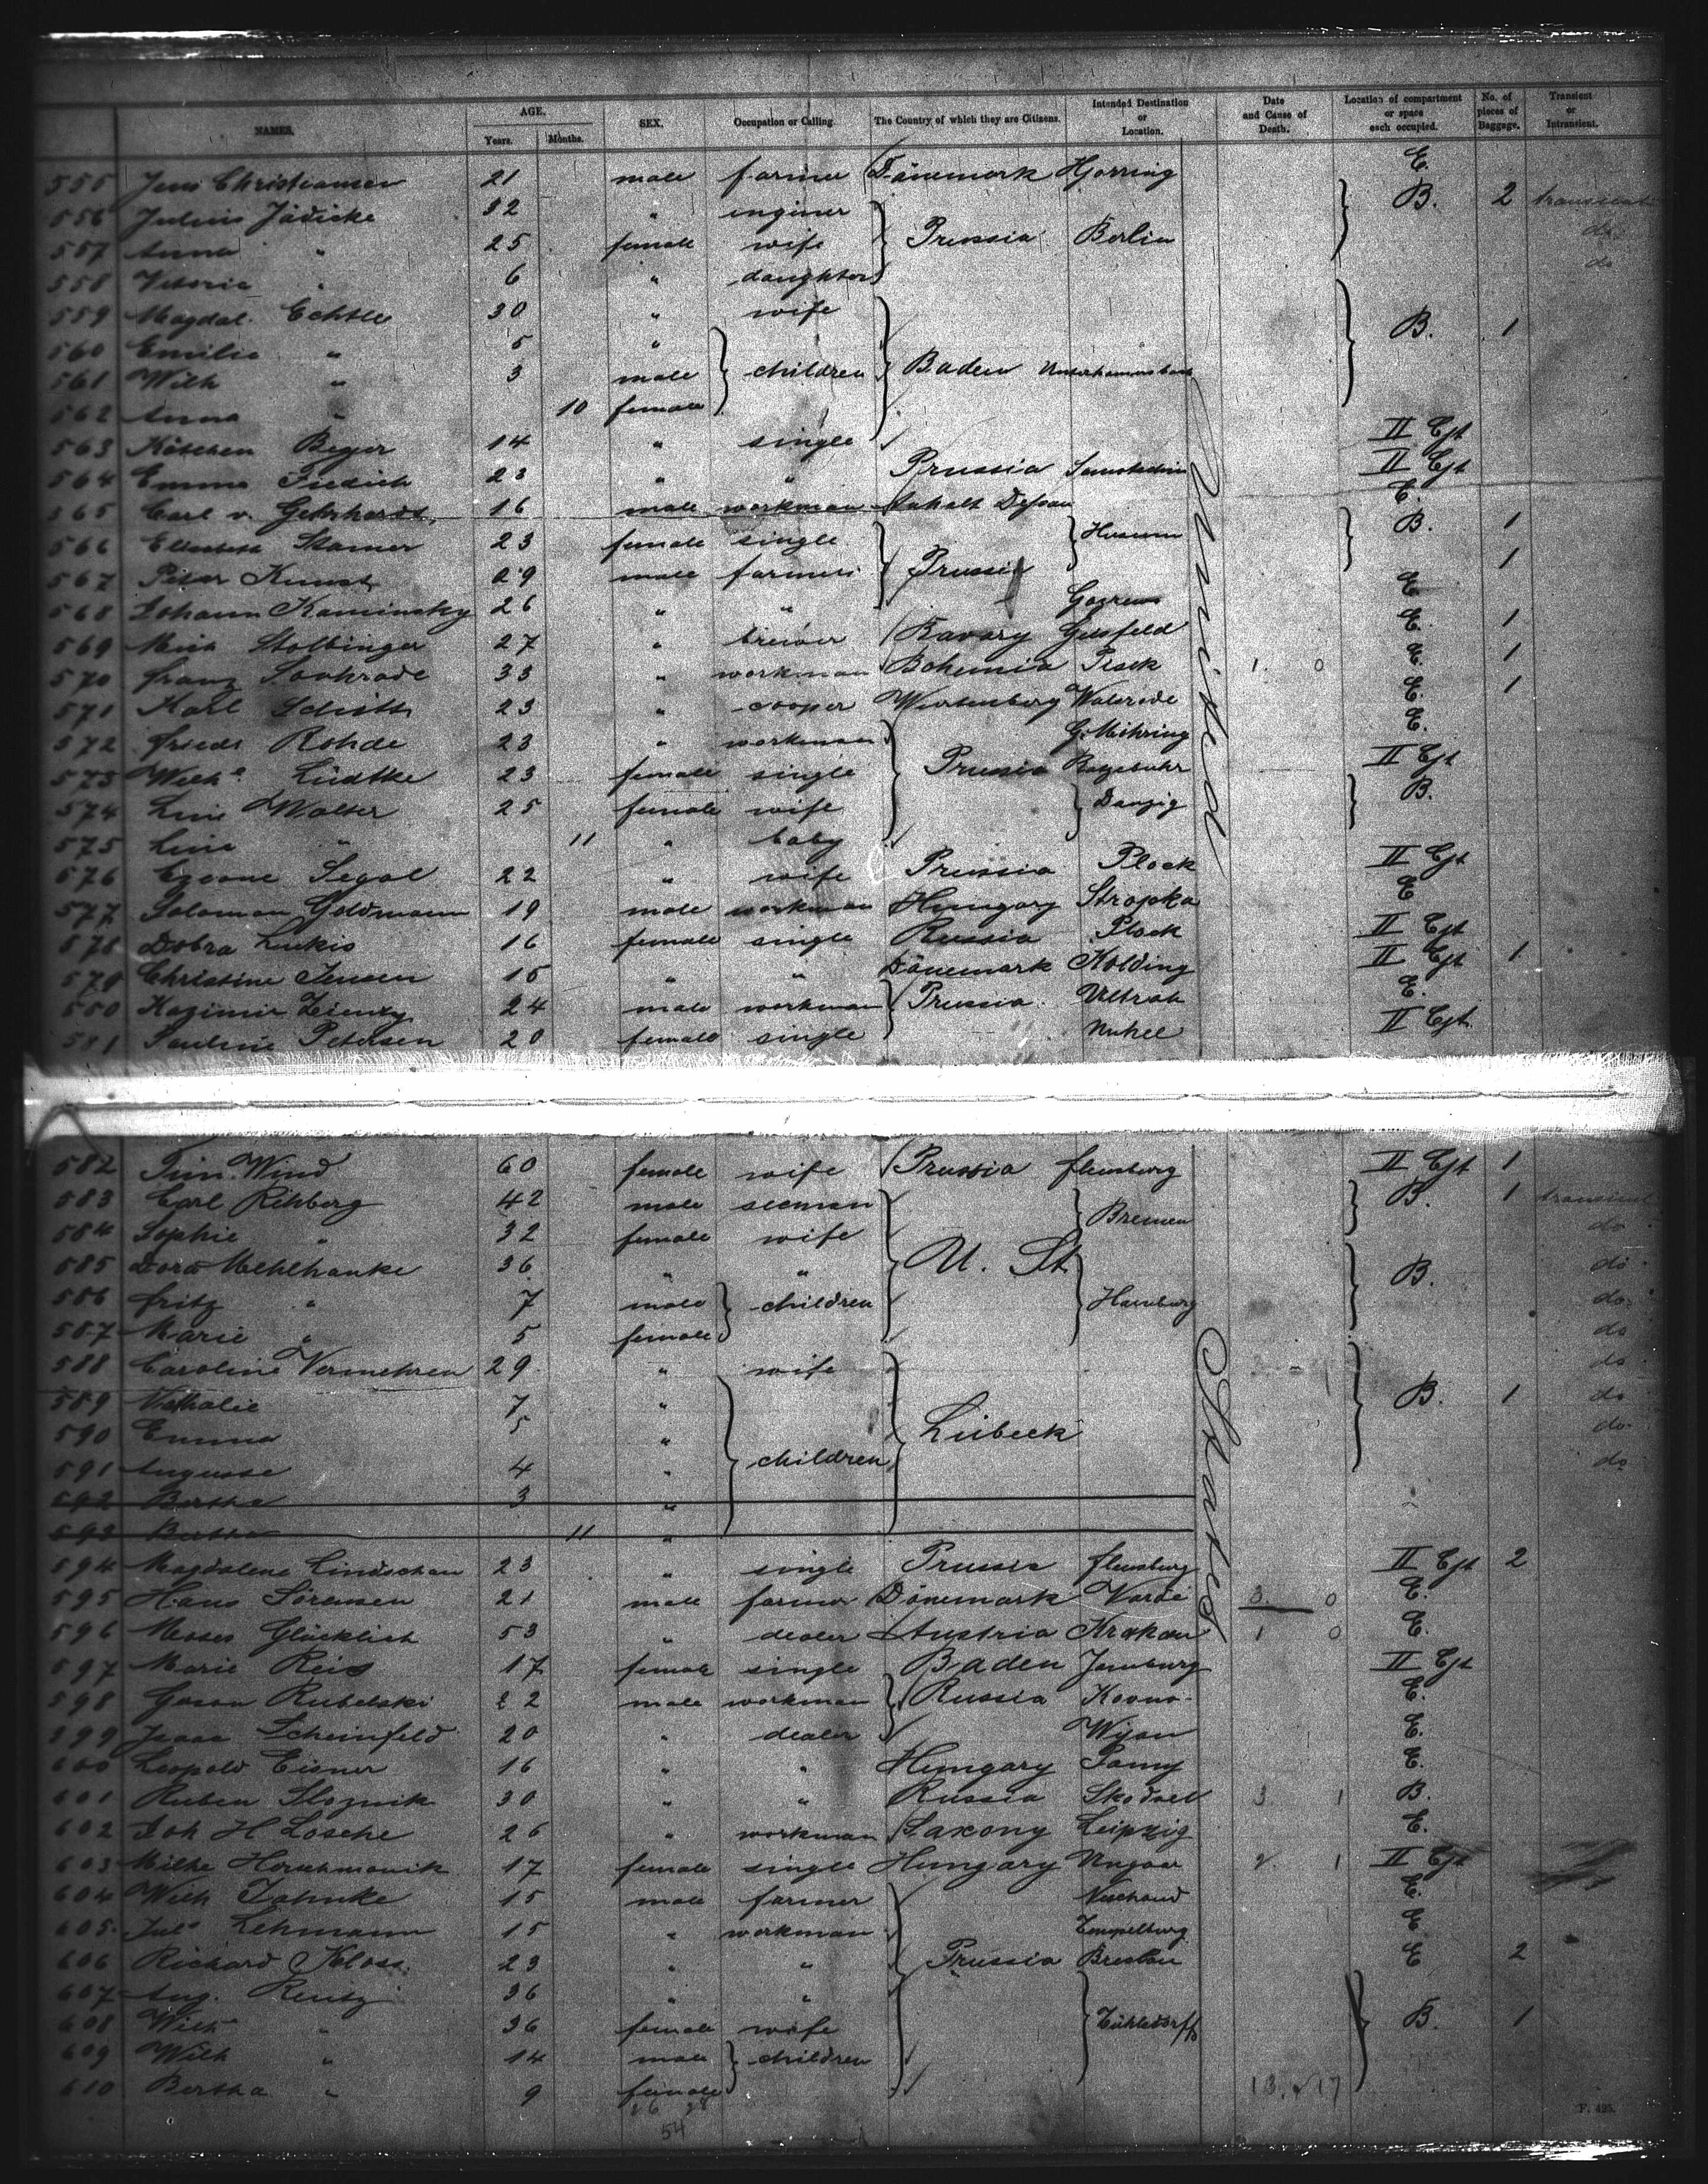 NAMES. AGE. Years. Months. SEX. Occupation or Calling. The Country of which they are Citizens. Intended Destination or Location. Date and Cause of Death. Location of compartment or space each occupied. No. of pieces of Baggage. Transient or Intransient.
555 Jens Christiansen 21 male farmer Dänemark Hjorring E.
556 Julius Jädicke 32 " enginer B. 2 transient
557 Anna " 25 female wife Prussia Berlin do
558 " 6 " daughter do
559 Magdal. Echtle 30 " wife
560 Emilie " 5 " B. 1
561 Wilh " 3 male children Baden
562 Anna " 10 female
563 Käthchen Beyer 14 " single II Cjt
564 Emma 23 " " Prussia II Cjt
565 Carl v. Gehrhardt 16 male workman Anhalt Dessau E.
566 Elisabeth Stamer 23 female single Husum B. 1
567 Peter Kunst 29 male farmer Prussia 1
568 Johann Kaminsky 26 " " E.
569 Stolbinger 27 " brewer Bavary Geisfeld E. 1
570 Franz 33 " workman Bohemia Pisek 1. 0 E. 1
571 Karl 23 " cooper Würtenberg E. 1
572 Friedr Rohde 23 " workman G. Möhring E.
573 Wilhe Lüdtke 23 female single Prussia Ratzebuhr II Cjt
574 Line Walter 25 female wife Danzig B.
575 Line " 11 " baby
576 Segal 22 " wife Prussia Plock II Cjt
577 Salomon Goldmann 19 male workman Hungary Stropka E
578 Dobra Lukis 16 female single Russia Plock II Cjt
579 Christine Jensen 15 " " Dänemark Kolding II Cjt 1
580 Kazimir 24 male workman Prussia. E.
581 Pauline Petersen 20 female single II Cjt
United States
582 Wind 60 female wife Prussia Flensburg II Cjt 1
583 Carl Rehberg 42 male seeman B. 1 transient
584 Sophie " 32 female wife Bremen do
585 Dora Mehlhanke 36 " " U. St. B. do
586 Fritz " 7 male children Hamburg do
587 Marie " 5 female do
588 Caroline Vermehren 29 " wife do
589 Nathalie 7 " B. 1 do
590 Emma 5 " Lübeck do
591 Auguste 4 " children do
592 Bertha 3 "
593 Bertha 11 "
594 Magdalene Lindschau 23 " single Prussia Flensburg II Cjt 2
595 Hans Sörensen 21 male farmer Dänemark Varde 3. 0 E.
596 Moses Glücklich 53 " dealer Austria Krakau 1 0 E.
597 Marie Reis 17 female single Baden II Cjt
598 Rubelski 22 male workman Russia Kovno E.
599 Isaac Scheinfeld 20 " dealer E.
600 Leopold Eisner 16 " " Hungary E.
601 Ruben 30 " " Russia 3 1 B.
602 Joh H Losche 26 " workman Saxony Leipzig E.
603 17 female single Hungary Ungvar 2. 1 II Cjt
604 Wilh Jahnke 15 male farmer E.
605 Juls Lehmann 15 " workman Tempelburg E
606 Richard Kloss 23 " " Prussia Breslau E 2
607 Aug. Rentz 36 " "
608 Wilh " 36 female wife B. 1
609 Wilh " 14 male children
610 Bertha " 9 female 13. 17
26 28
54
F. 425.